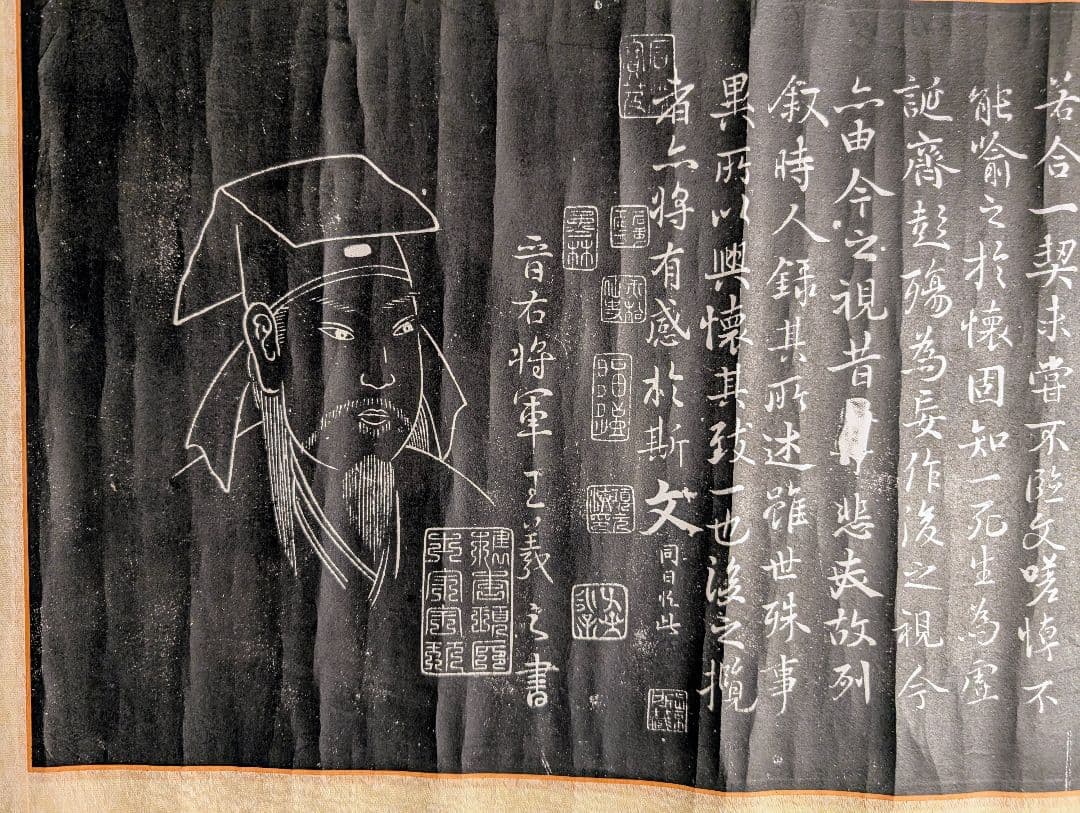 若合一契未嘗不臨文嗟悼不
能喻之於懷固知一死生為虛
誕齊彭殤為妄作後之視今
亦由今之視昔悲夫故列
叙時人錄其所述雖世殊事
異所以興懷其致一也後之攬
者亦將有感於斯文
晉右將軍王羲之書